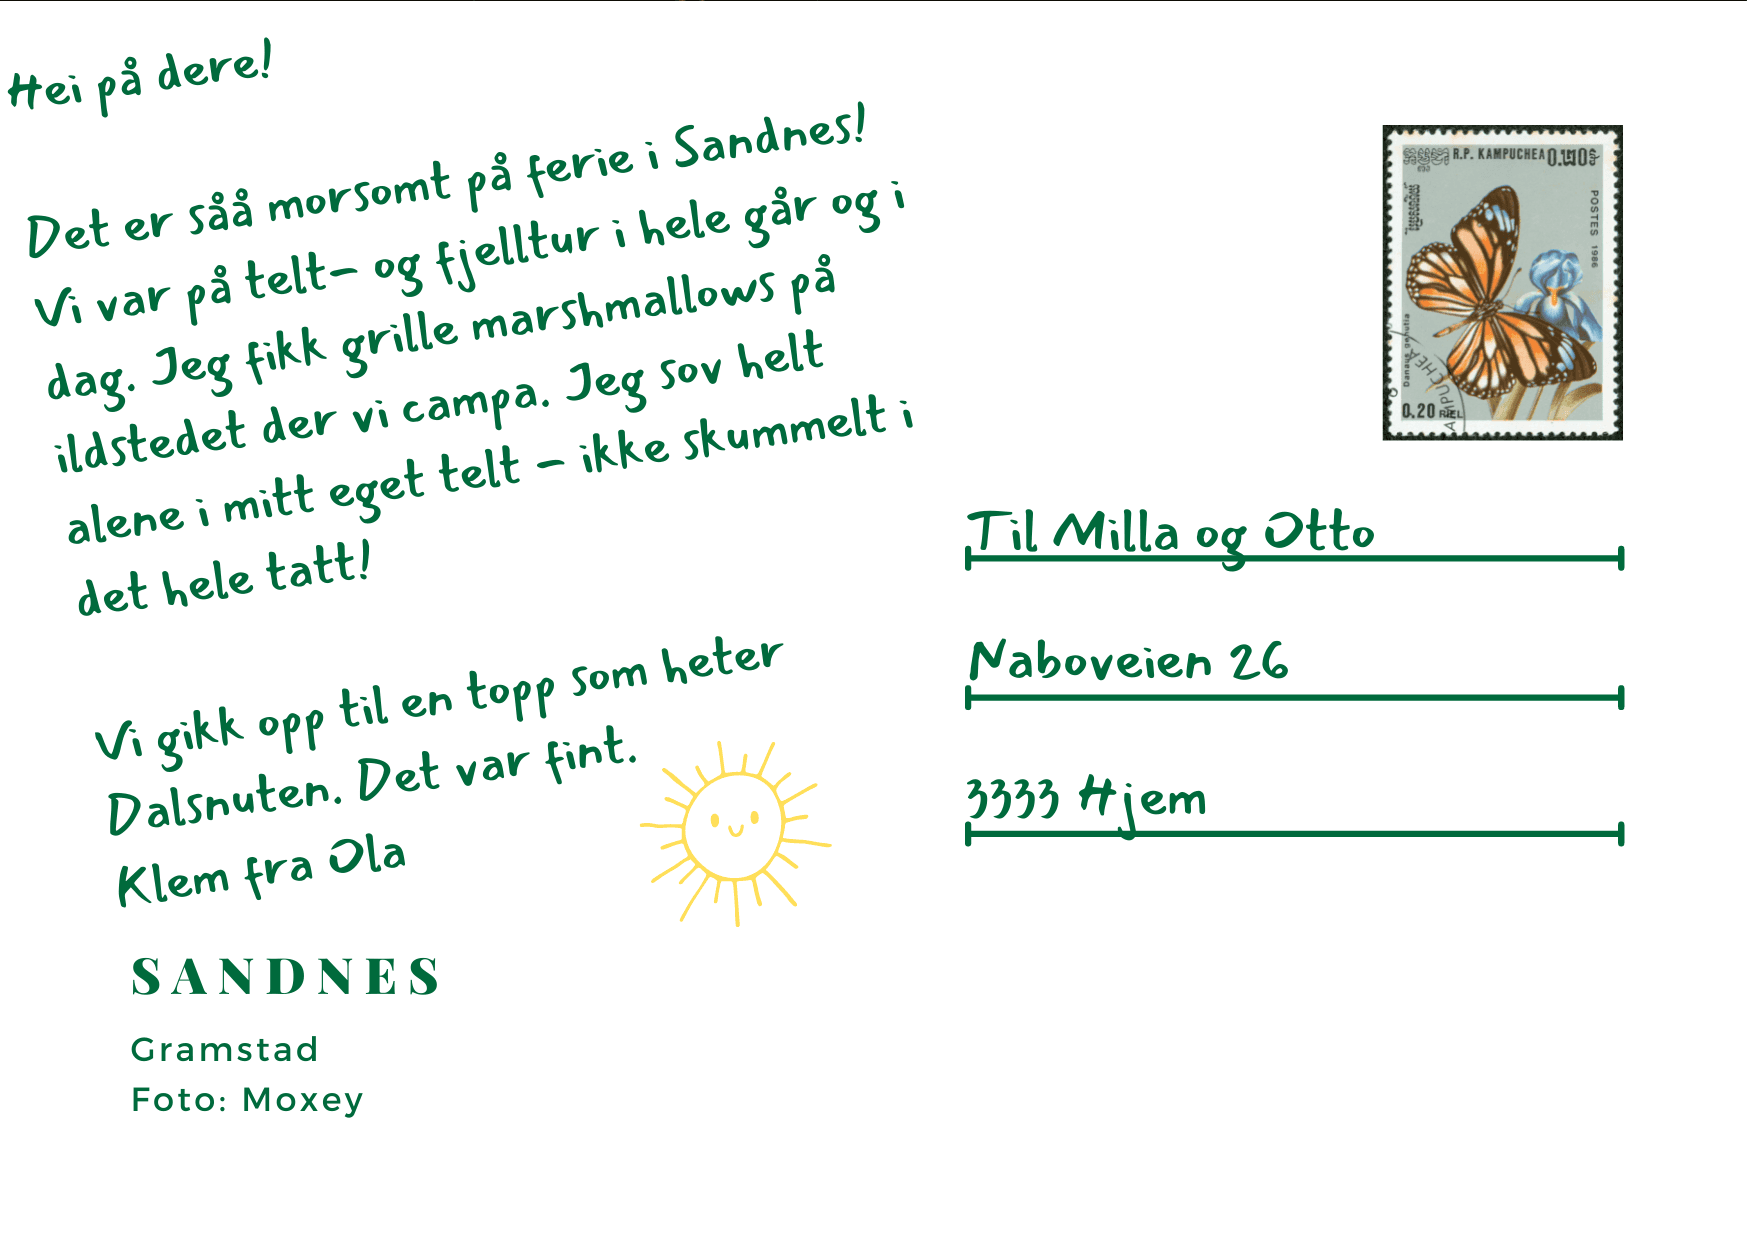 Hei på dere!
Det er såå morsomt på ferie i Sandnes!
Vi var på telt- og fjelltur i hele går og i
dag. Jeg fikk grille marshmallows på
ildstedet der vi campa. Jeg sov helt
alene i mitt eget telt - ikke skummelt i
det hele tatt!
Vi gikk opp til en topp som heter
Dalsnuten. Det var fint.
Klem fra Ola
SANDNES
Gramstad
Foto: Moxey
R.P. KAMPUCHEA
POSTES 1986
Danaus genutia
0.20 RIEL
Til Milla og Otto
Naboveien 26
3333 Hjem